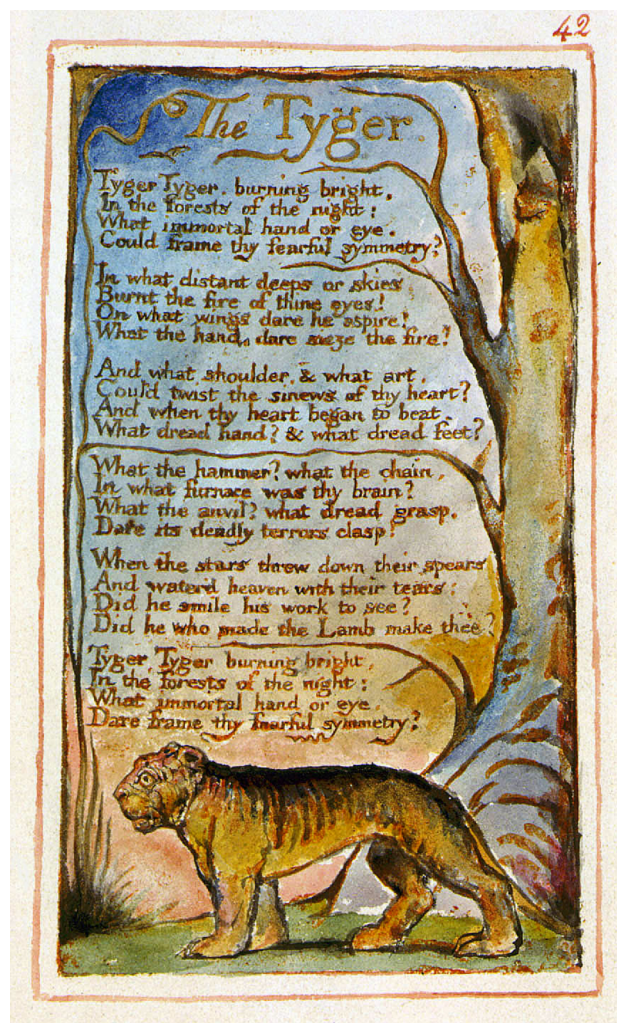 42
The Tyger.
Tyger Tyger, burning bright,
In the forests of the night:
What immortal hand or eye,
Could frame thy fearful symmetry?
In what distant deeps or skies
Burnt the fire of thine eyes!
On what wings dare he aspire!
What the hand, dare sieze the fire?
And what shoulder, & what art,
Could twist the sinews of thy heart?
And when thy heart began to beat,
What dread hand? & what dread feet?
What the hammer? what the chain,
In what furnace was thy brain?
What the anvil? what dread grasp,
Dare its deadly terrors clasp!
When the stars threw down their spears
And water'd heaven with their tears:
Did he smile his work to see?
Did he who made the Lamb make thee?
Tyger, Tyger burning bright,
In the forests of the night:
What immortal hand or eye,
Dare frame thy fearful symmetry?